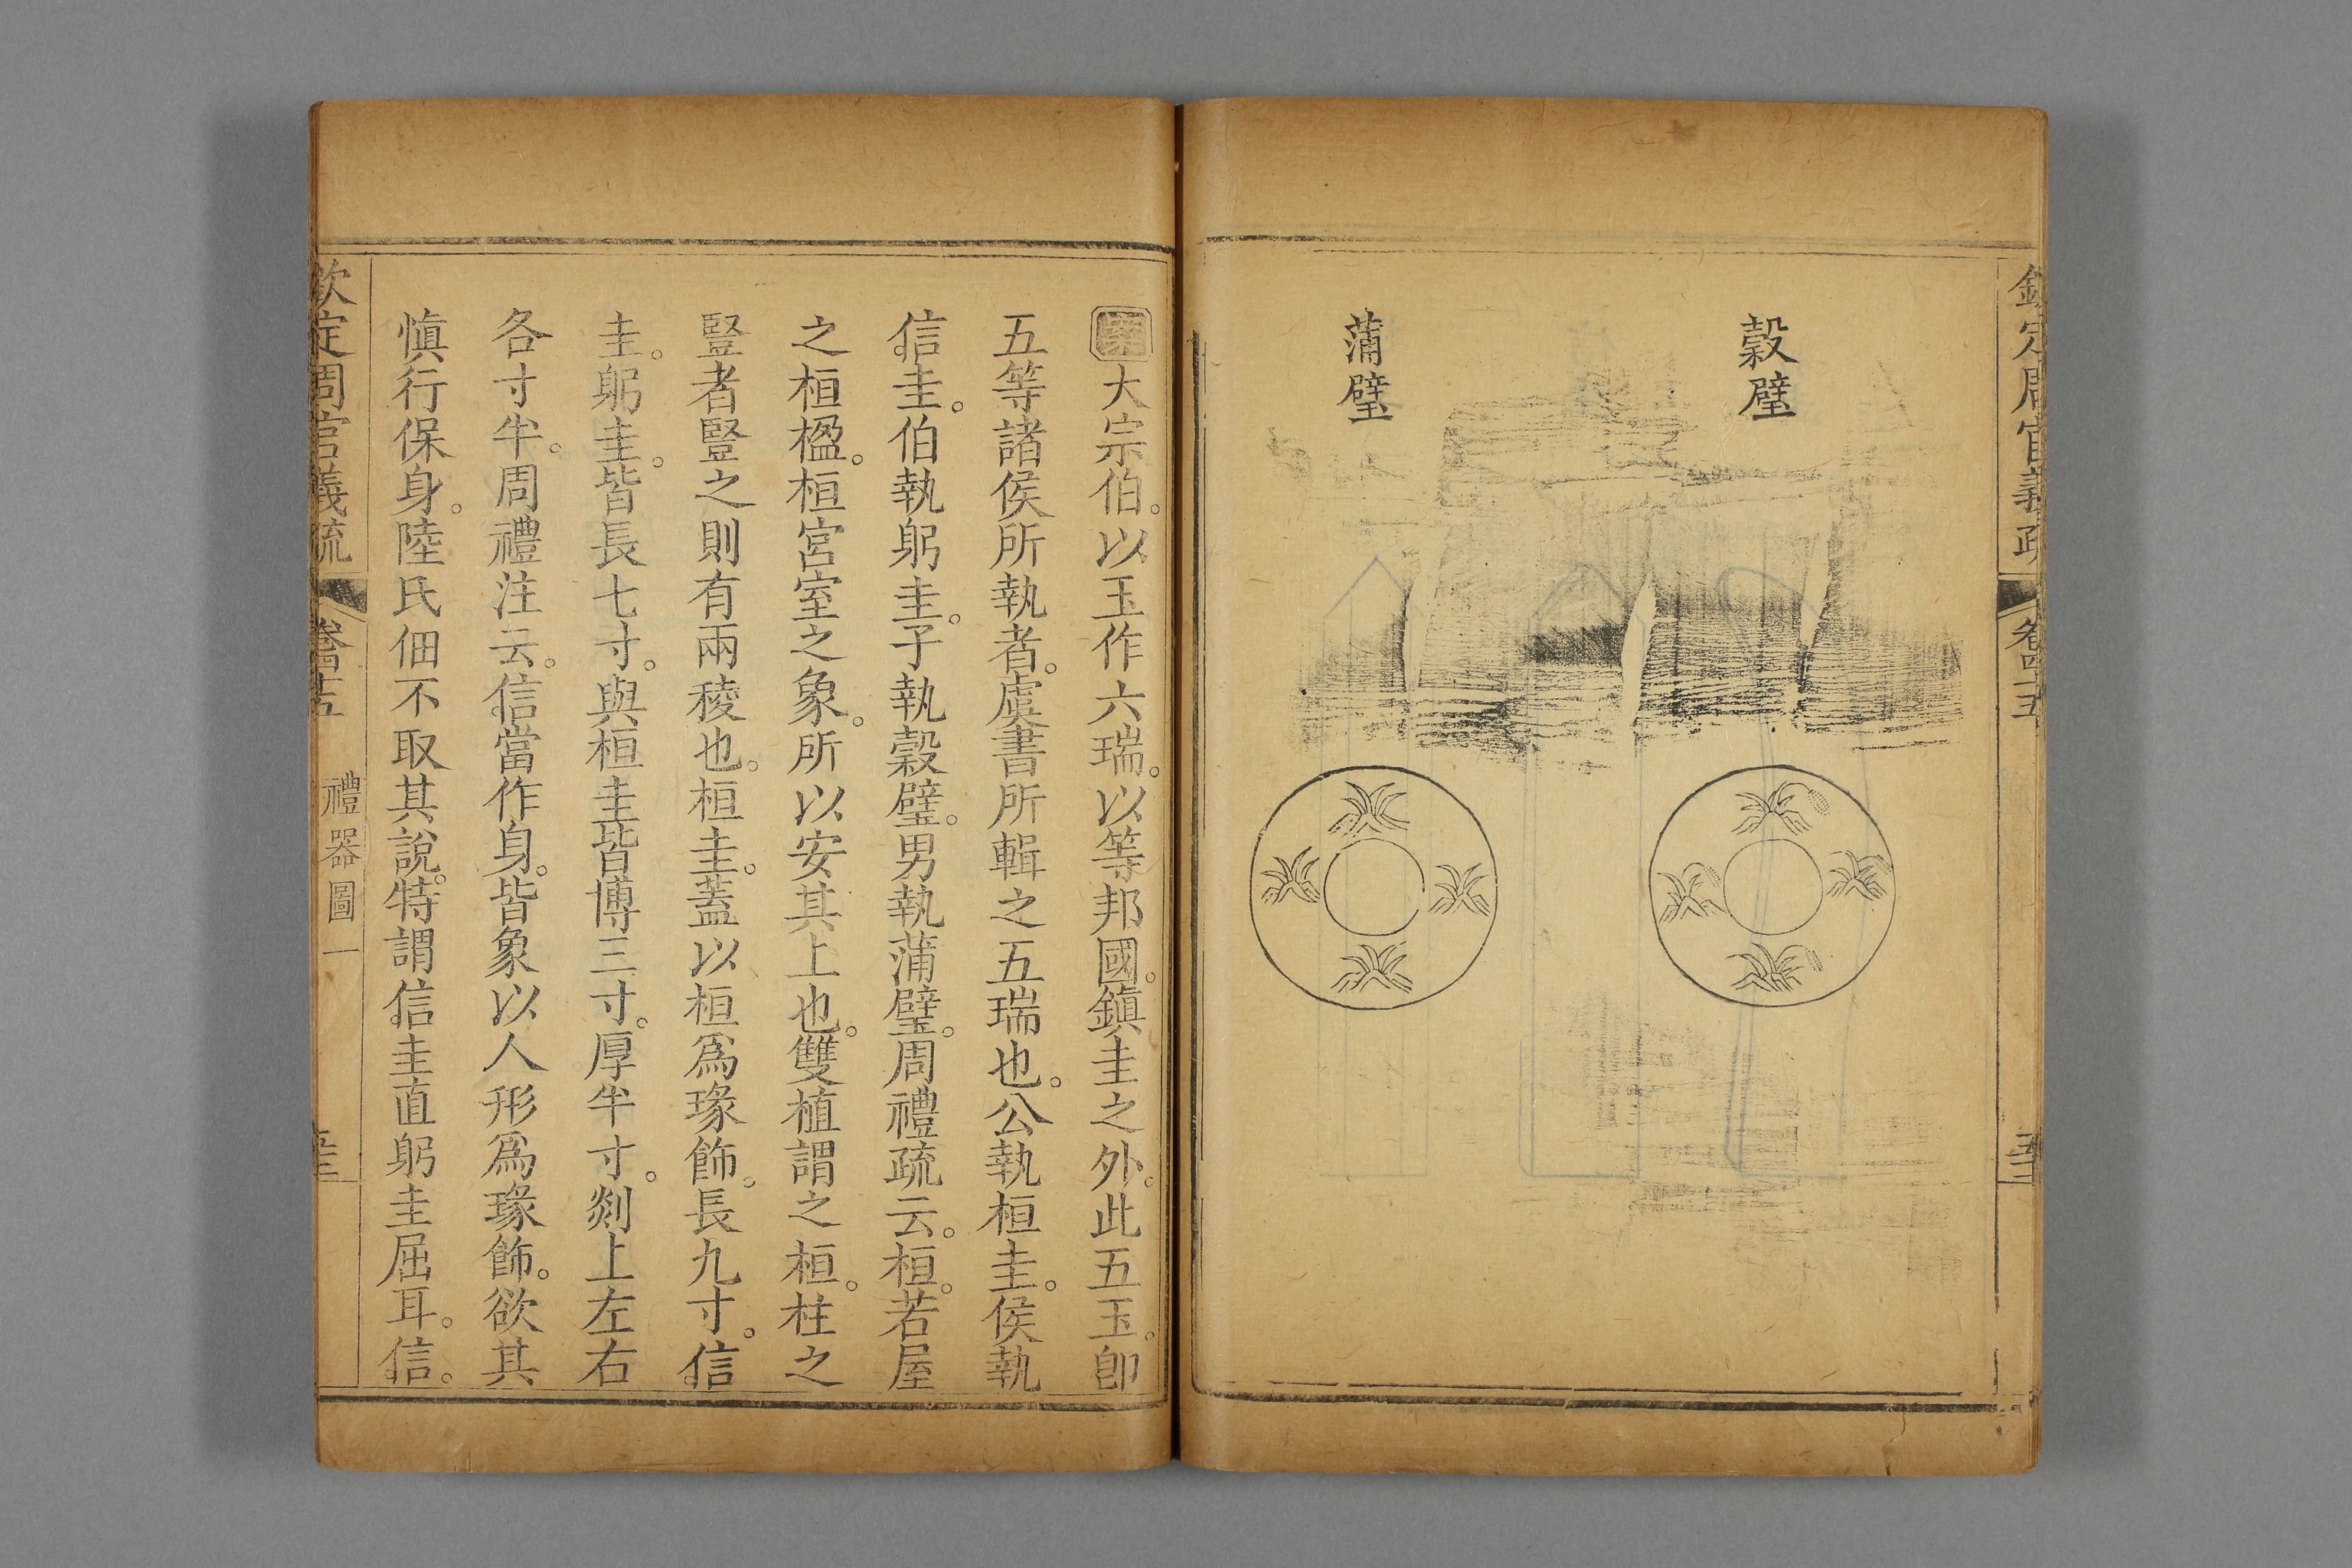 穀璧
蒲璧
案大宗伯。以玉作六瑞。以等邦國。鎮圭之外。此五玉。卽
五等諸侯所執者。虞書所輯之五瑞也。公執桓圭。侯執
信圭。伯執躬圭。子執穀璧。男執蒲璧。周禮疏云。桓。若屋
之桓楹。桓宮室之象。所以安其上也。雙植謂之桓。柱之
豎者豎之則有兩稜也。桓圭。蓋以桓爲瑑飾。長九寸。信
圭。躬圭。皆長七寸。與桓圭皆博三寸。厚半寸。剡上左右
各寸半。周禮注云。信當作身。皆象以人形爲瑑飾。欲其
慎行保身。陸氏佃不取其說。特謂信圭直躬圭屈耳。信。
欽定周官義疏
卷四十五
禮器圖一